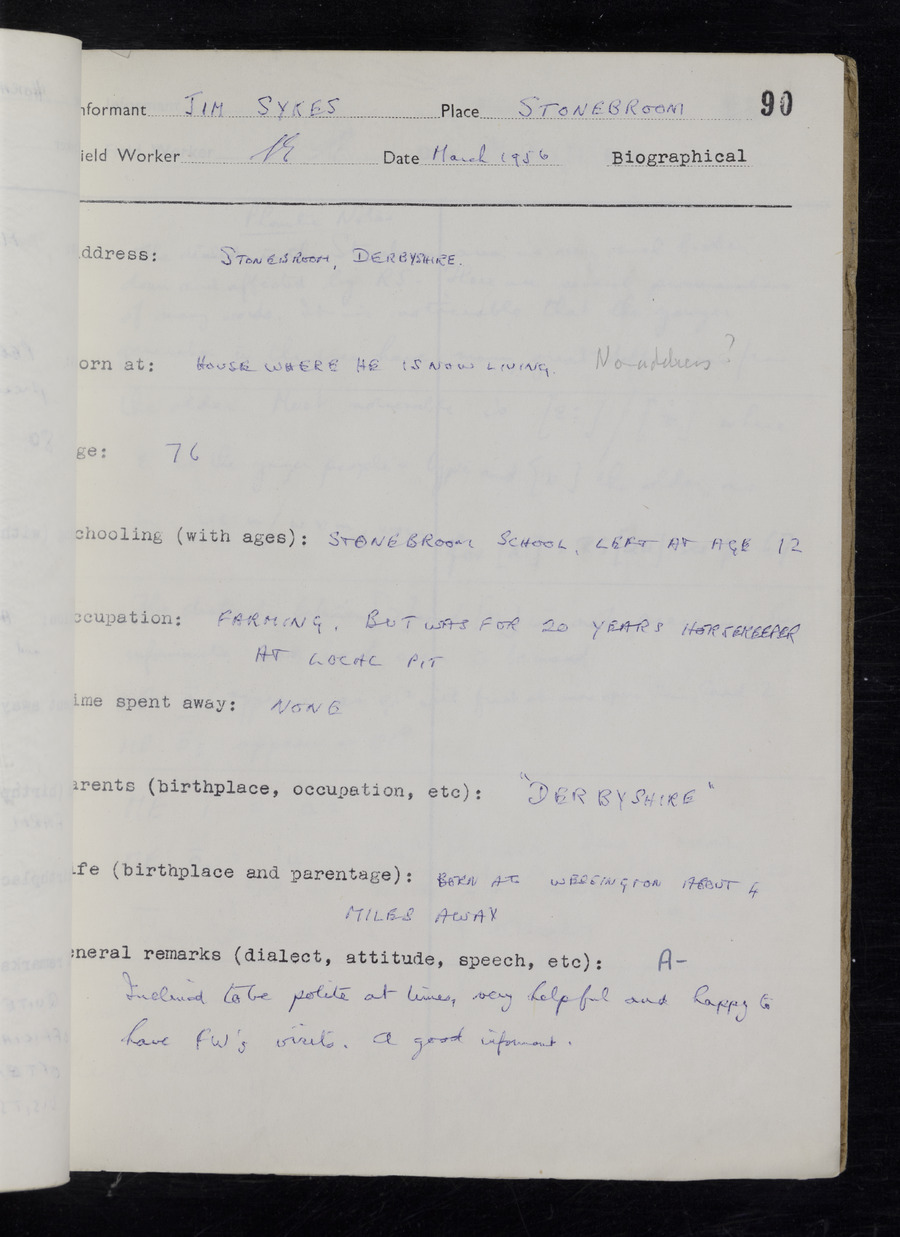 nformant JIM SYKES Place STONEBROOM 90
ield Worker Date March 1956 Biographical
ddress: STONEBROOM, DERBYSHIRE.
orn at: HOUSE WHERE HE IS NOW LIVING. No address?
ge: 76
chooling (with ages): STONEBROOM SCHOOL, LEFT AT AGE 12
ccupation: FARMING, BUT WAS FOR 20 YEARS HORSEKEEPER
AT LOCAL PIT
ime spent away: NONE
arents (birthplace, occupation, etc): "DERBYSHIRE"
ife (birthplace and parentage): BORN AT WESSINGTON ABOUT 4
MILES AWAY
eneral remarks (dialect, attitude, speech, etc): A-
Inclined to be polite at times, very helpful and happy to
have FW's visits. A good informant.